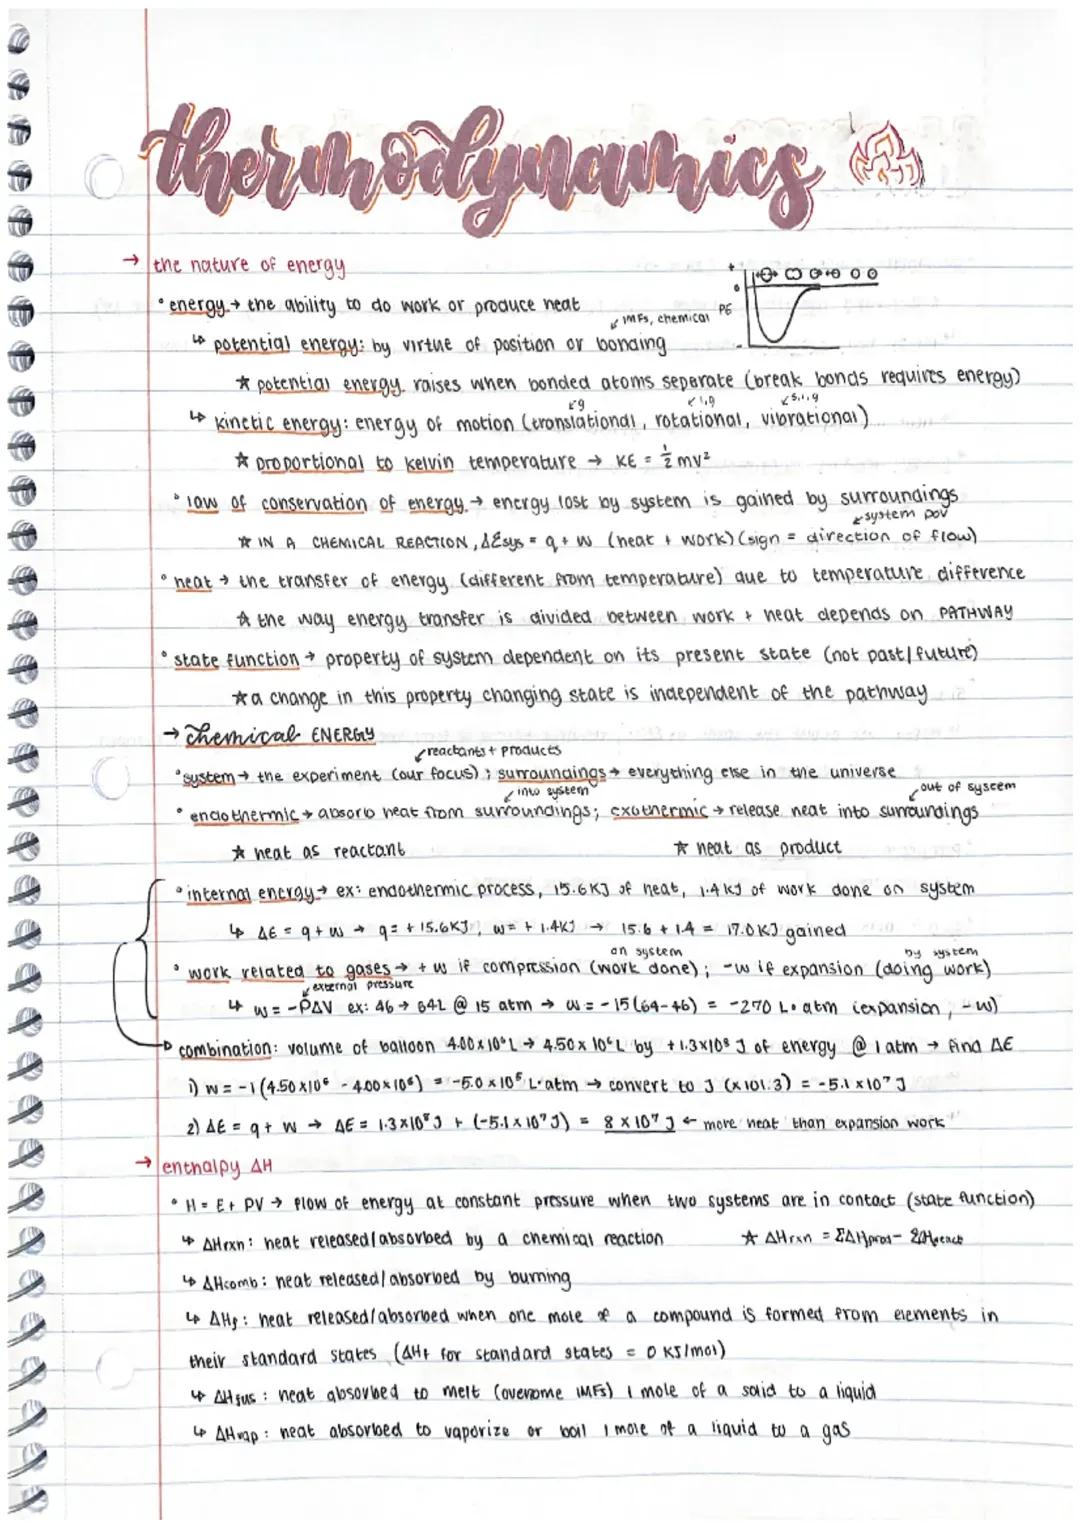 thermodynamics
→ the nature of energy
° energy → the ability to do work or produce heat
IMFs, chemical
PE
+
0
-
↳ potential energy: by virtue of position or bonding
★ potential energy raises when bonded atoms seperate (break bonds requires energy)
g
l,g
s,l,g
↳ kinetic energy: energy of motion (translational, rotational, vibrational)
★ proportional to kelvin temperature → KE = ½ mv²
° law of conservation of energy → energy lost by system is gained by surroundings
system pov
★ IN A CHEMICAL REACTION, ΔEsys = q + w (heat + work) (sign = direction of flow)
° heat → the transfer of energy (different from temperature) due to temperature difference
★ the way energy transfer is divided between work + heat depends on PATHWAY
° state function → property of system dependent on its present state (not past/future)
★ a change in this property changing state is independent of the pathway
→ Chemical ENERGY
reactants + products
° system → the experiment (our focus); surroundings → everything else in the universe
into system
out of system
° endothermic → absorb heat from surroundings; exothermic → release heat into surroundings
★ heat as reactant ★ heat as product
° internal energy → ex: endothermic process, 15.6 KJ of heat, 1.4 kJ of work done on system
↳ ΔE = q + w → q = +15.6KJ, w = +1.4KJ → 15.6 + 1.4 = 17.0 KJ gained
on system
by system
° work related to gases → +w if compression (work done); -w if expansion (doing work)
external pressure
↳ w = -PΔV ex: 46 → 64L @ 15 atm → w = -15(64-46) = -270 L·atm (expansion, -w)
combination: volume of balloon 4.00 x 10⁶ L → 4.50 x 10⁶ L by +1.3x10⁸ J of energy @ 1 atm → find ΔE
1) w = -1 (4.50 x10⁶ - 4.00 x 10⁶) = -5.0 x 10⁵ L·atm → convert to J (x 101.3) = -5.1 x 10⁷ J
2) ΔE = q + w → ΔE = 1.3 x 10⁸ J + (-5.1 x 10⁷ J) = 8 x 10⁷ J ← more heat than expansion work
→ enthalpy ΔH
° H = E + PV → flow of energy at constant pressure when two systems are in contact (state function)
↳ ΔHrxn: heat released/absorbed by a chemical reaction ★ ΔHrxn = ΣΔHprod - ΣΔHreact
↳ ΔHcomb: heat released/absorbed by burning
↳ ΔHf: heat released/absorbed when one mole of a compound is formed from elements in
their standard states (ΔHf for standard states = 0 KJ/mol)
↳ ΔHfus: heat absorbed to melt (overcome IMFs) 1 mole of a solid to a liquid
↳ ΔHvap: heat absorbed to vaporize or boil 1 mole of a liquid to a gas